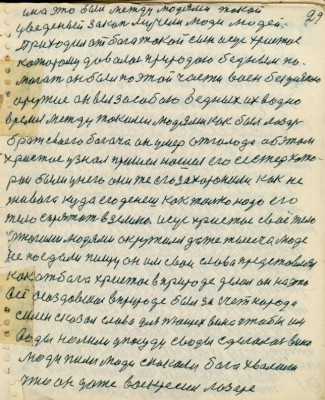 29
има это были между людями такой
уведеный закон мучили люди людей.
Приходил от бога такой сын исус христос
которому давалось природою бедным по-
могат он был по этой части воен без
оружие он вел за собою бедных их водно
время между такими людями как был лазар
брат своего богача он умер от голода об этом
христос узнал пришел нашел его сестер кото-
ры были у него они же его захоронили как не
живого куда его денем как только надо его
тело спрятат в землю. исус христос своё тело
многими людями окружили даже тысеча люде
не поедали пищу он им свои слова представлял
как от бога христос в природе делал он на это
всё оказдовался в природе был за счет народа
силен сказал слово для пющих вино чтобы им
воды налили у посуду с воды сделалось вино
люди пили люди скакали бога хвалили
что он даже воскресил лазаря